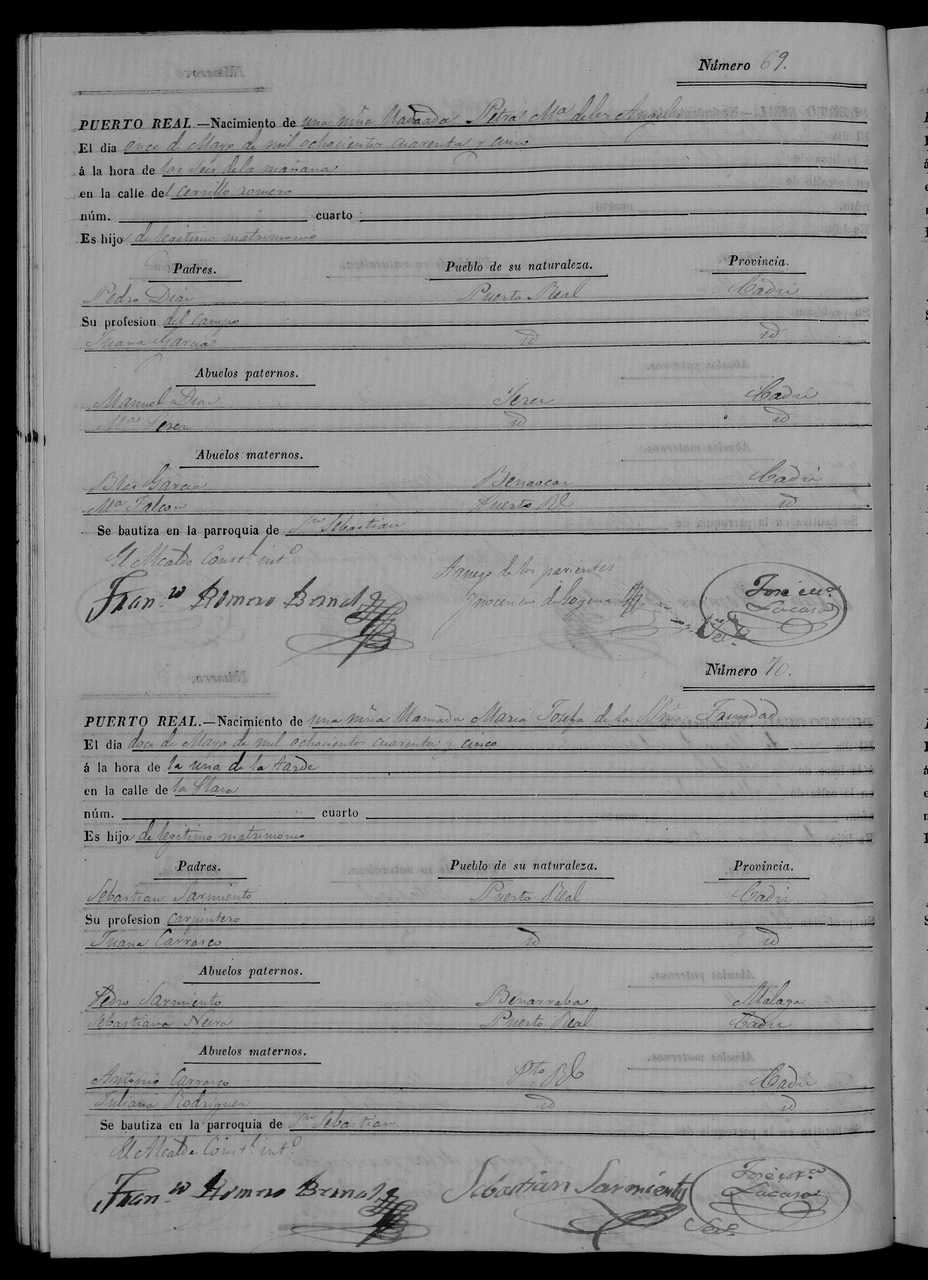 Número 69.
PUERTO REAL.—Nacimiento de una niña llamada Petra Mª de los Angeles
El dia once de Mayo de mil ochocientos cuarenta y cinco
á la hora de las seis de la mañana
en la calle del cerrillo romero
núm. cuarto
Es hijo de legitimo matrimonio
Padres. Pueblo de su naturaleza. Provincia.
Pedro Diaz Puerto Real Cadiz
Su profesion del campo
Juana Garcia id id
Abuelos paternos.
Manuel Diaz Jerez Cadiz
Mª Perez id id
Abuelos maternos.
Blas Garcia Benaocaz Cadiz
Mª Falcon Puerto Rl id
Se bautiza en la parroquia de Sn Sebastian
El Alcalde Constl. intº
A ruego de los parientes
Franco Romero Bernal
Ynocencio
José Mª Lacasa
Sero.
Número 70.
PUERTO REAL.—Nacimiento de una niña llamada Maria Josefa de la Trinidad
El dia doce de Mayo de mil ochocientos cuarenta y cinco
á la hora de la una de la tarde
en la calle de la Plaza
núm. cuarto
Es hijo de legitimo matrimonio
Padres. Pueblo de su naturaleza. Provincia.
Sebastian Sarmiento Puerto Real Cadiz
Su profesion carpintero
Juana Carrasco id id
Abuelos paternos.
Pedro Sarmiento Benarraba Malaga
Sebastiana Neira Puerto Real Cadiz
Abuelos maternos.
Antonio Carrasco Pto Rl Cadiz
Juliana Rodriguez id id
Se bautiza en la parroquia de Sn Sebastian
El Alcalde Constl. intº
Franco Romero Bernal Sebastian Sarmiento José Mª Lacasa
Sero.